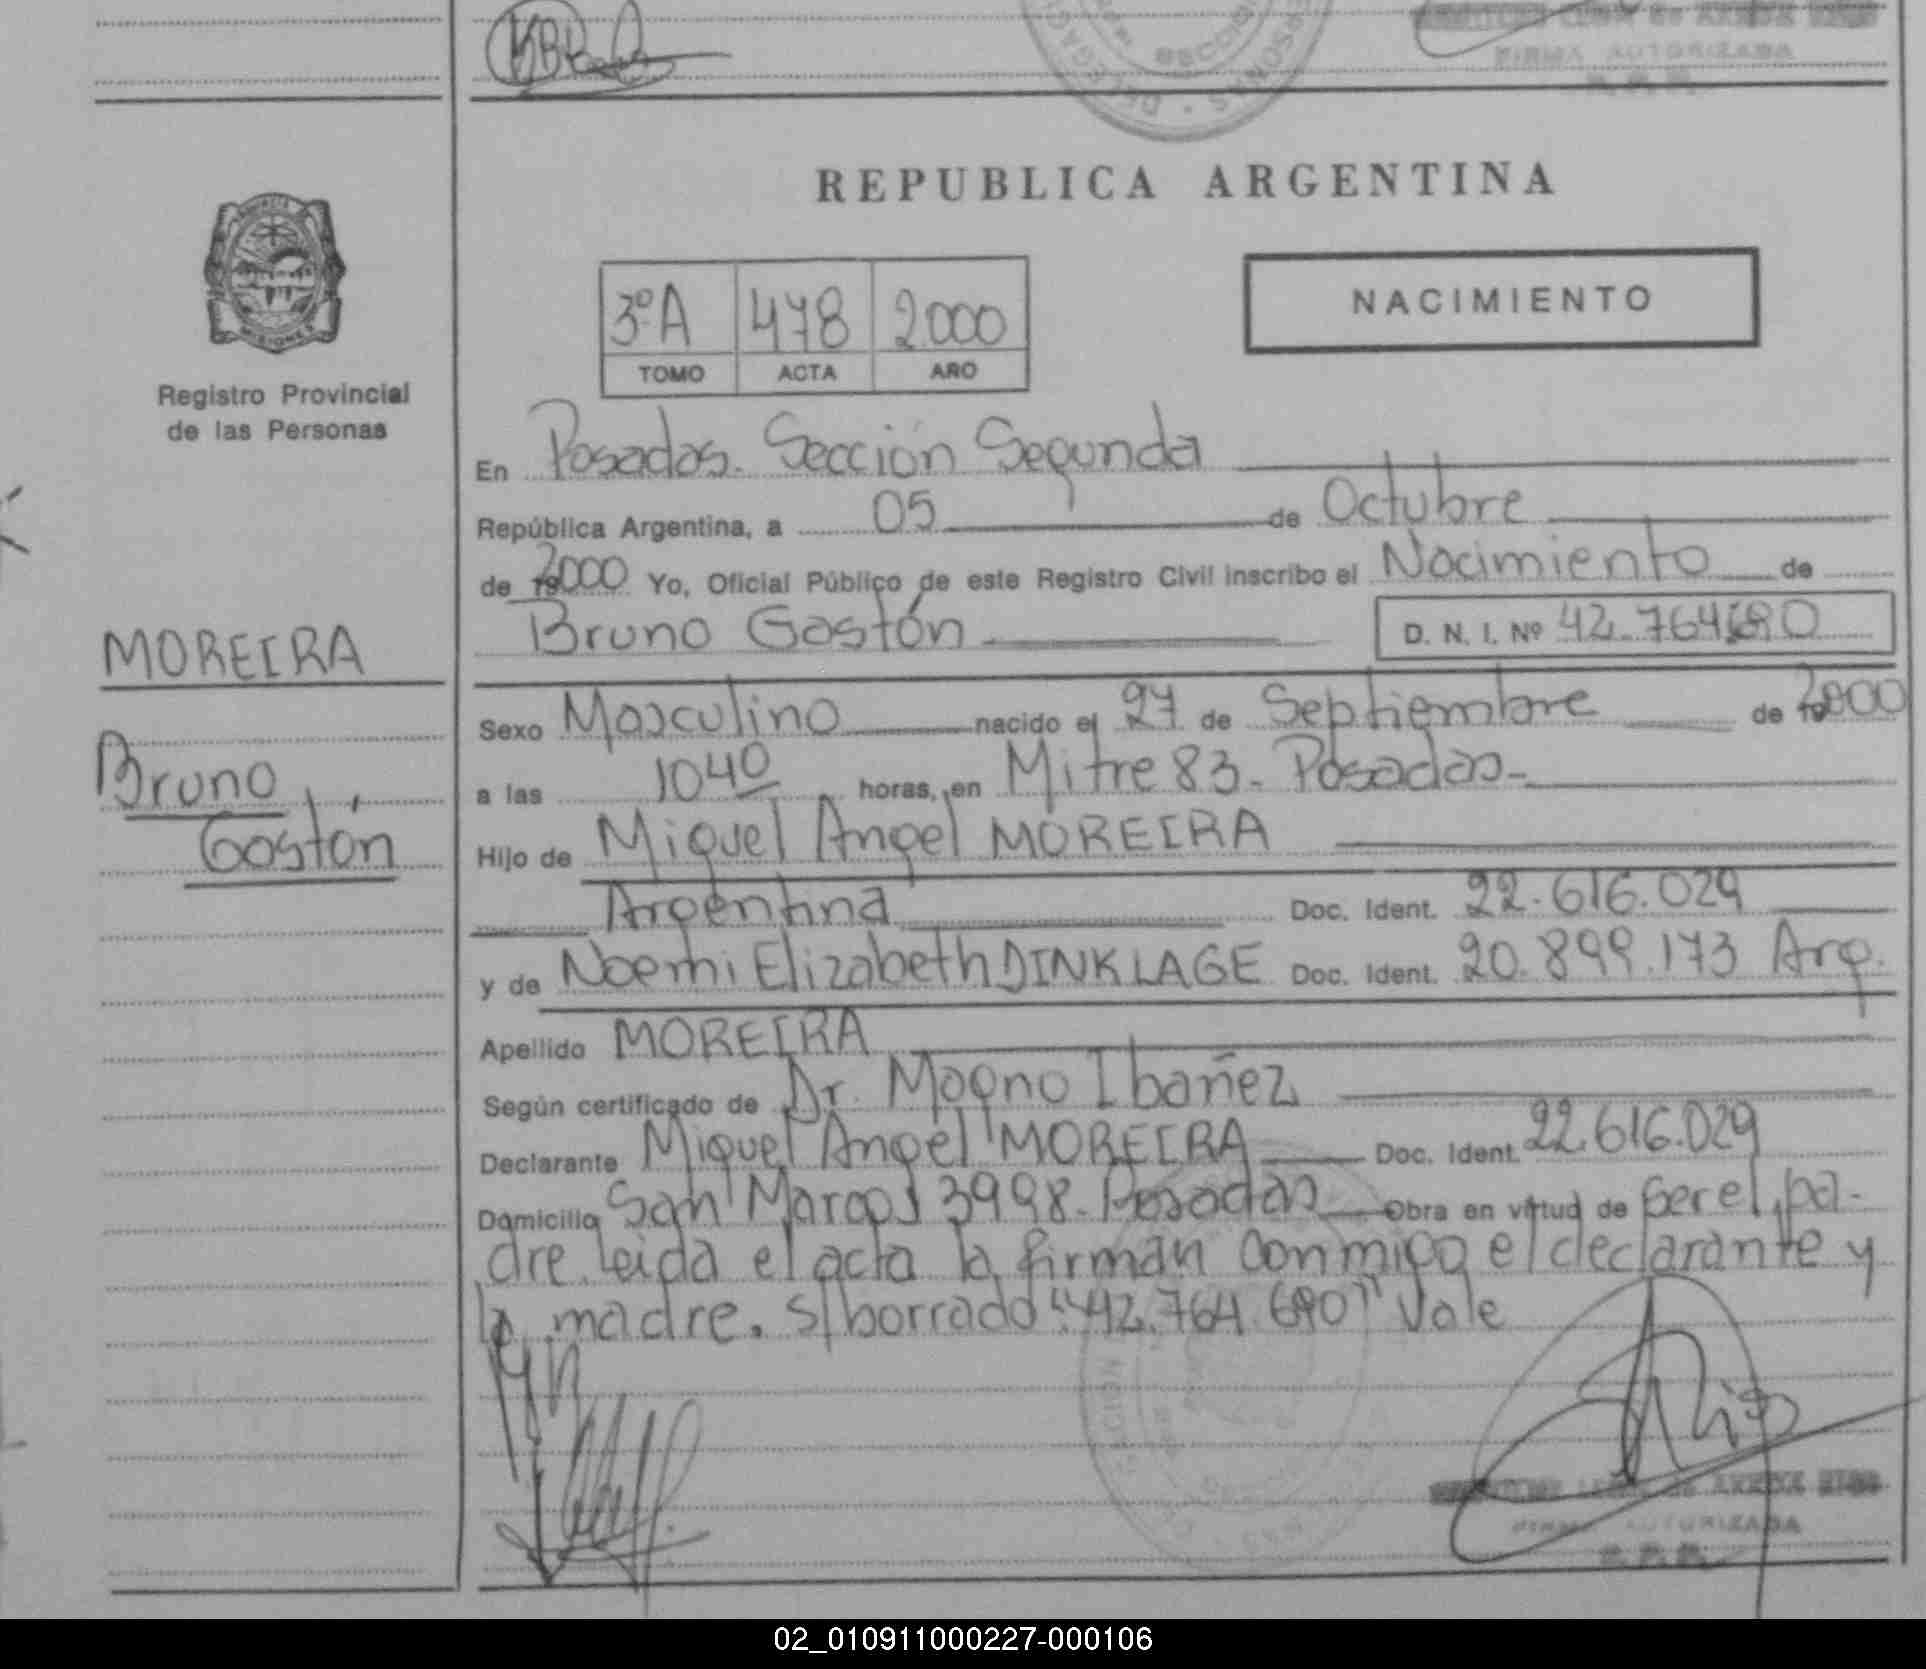 FIRMA AUTORIZADA
REPUBLICA ARGENTINA
3º A 478 2000
TOMO ACTA AÑO
NACIMIENTO
Registro Provincial
de las Personas
MOREIRA
Bruno
Gastón
En Posadas. Sección Segunda
República Argentina, a 05 de Octubre
de 2000 Yo, Oficial Público de este Registro Civil inscribo el Nacimiento de
Bruno Gastón D. N. I. Nº 42.764.690
Sexo Masculino nacido el 27 de Septiembre de 2000
a las 10 40 horas, en Mitre 83 - Posadas -
Hijo de Miguel Angel MOREIRA
Argentina Doc. Ident. 22.616.029
y de Noemi Elizabeth DINKLAGE Doc. Ident. 20.899.173 Arg.
Apellido MOREIRA
Según certificado de Dr. Magno Ibañez
Declarante Miguel Angel MOREIRA Doc. Ident. 22.616.029
Domicilio San Marcos 3998 - Posadas Obra en virtud de ser el pa-
dre. leida el acta la firman conmigo el declarante y
la madre. s/borrado "42.764.690" Vale
FIRMA AUTORIZADA
02_010911000227-000106